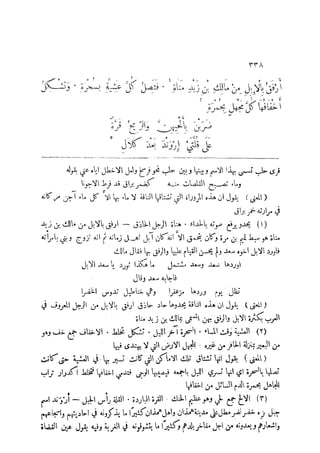 ٣٣٨
أرفق بالإبل من مالك بن زيد مناة ، فتصل كل عشية بسحرة ، وتشكل
أخفافها كل مجهل بحمرة
ضربن بألحيهن والريح قرة
على قلتي إروند بعد كلال
قرى حلب تسمى بهذا الاسم وبينها وبين حلب نحو فرسخ ولعل الاخطل اياه عنى بقوله
وماء تصبح القلصات منه كخمر براق قد فرط الاجونا
(المعنى) يقول ان هذه المروراة التي تشتاقها الناقة لا ماء بها الا كل ماء آجن
في مرارته خمر براق
(١) يحدو يرفع صوته بالحداء . هناة الرجل الحاذق — ارفق بالابل من مالك بن زيد
مناة هو سبط تميم بن مرة وكان يتحمق الا انه كان آبل اهل زمانه ثم انه تزوج وبنى بامرأته
فاورد الابل اخوه سعد ولم يحسن القيام عليها والرفق بها فقال مالك
اوردها سعد وسعد مشتمل ما هكذا تورد يا سعد الابل
فاجابه سعد وقال
تظل يوم وردها مزعفرا وهي خناطيل تجوس الخضرا
(المعنى) يقول ان هذه الناقة يحدوها حاد حاذق ارفق بالابل من الرجل المعروف في
العرب بكثرة الابل والرفق بهن المسمى بمالك بن زيد مناة
(٢) العشية وقت المساء . السحرة آخر الليل . تشكل تخلط . الاخفاف جمع خف وهو
من البعير بمنزلة الحافر من غيره . المجهل الارض التي لا يهتدى فيها
(المعنى) يقول انها تشتاق تلك الاماكن التي كانت تسير بها في العشية حتى كانت
تصلها بالسحرة اي انها تمشي الليل باجمعه فيصيبها الوجى فتدمى اخفافها فتخلط اكدار تراب
المجاهل بحمرة الدم السائل من اخفافها
(٣) الالح جمع لحي وهو عظيم الحنك . القرة الباردة . القلة رأس الجبل — أروند اسم
جبل نزه خضر نضر مطل على مدينة همذان واهل همذان كثيرا ما يذكرونه في احاديثهم واسجاعهم
واشعارهم ويعدونه من اجل مفاخر بلدهم وكثيرا ما يتشوقونه في الغربة وفيه يقول عين القضاة